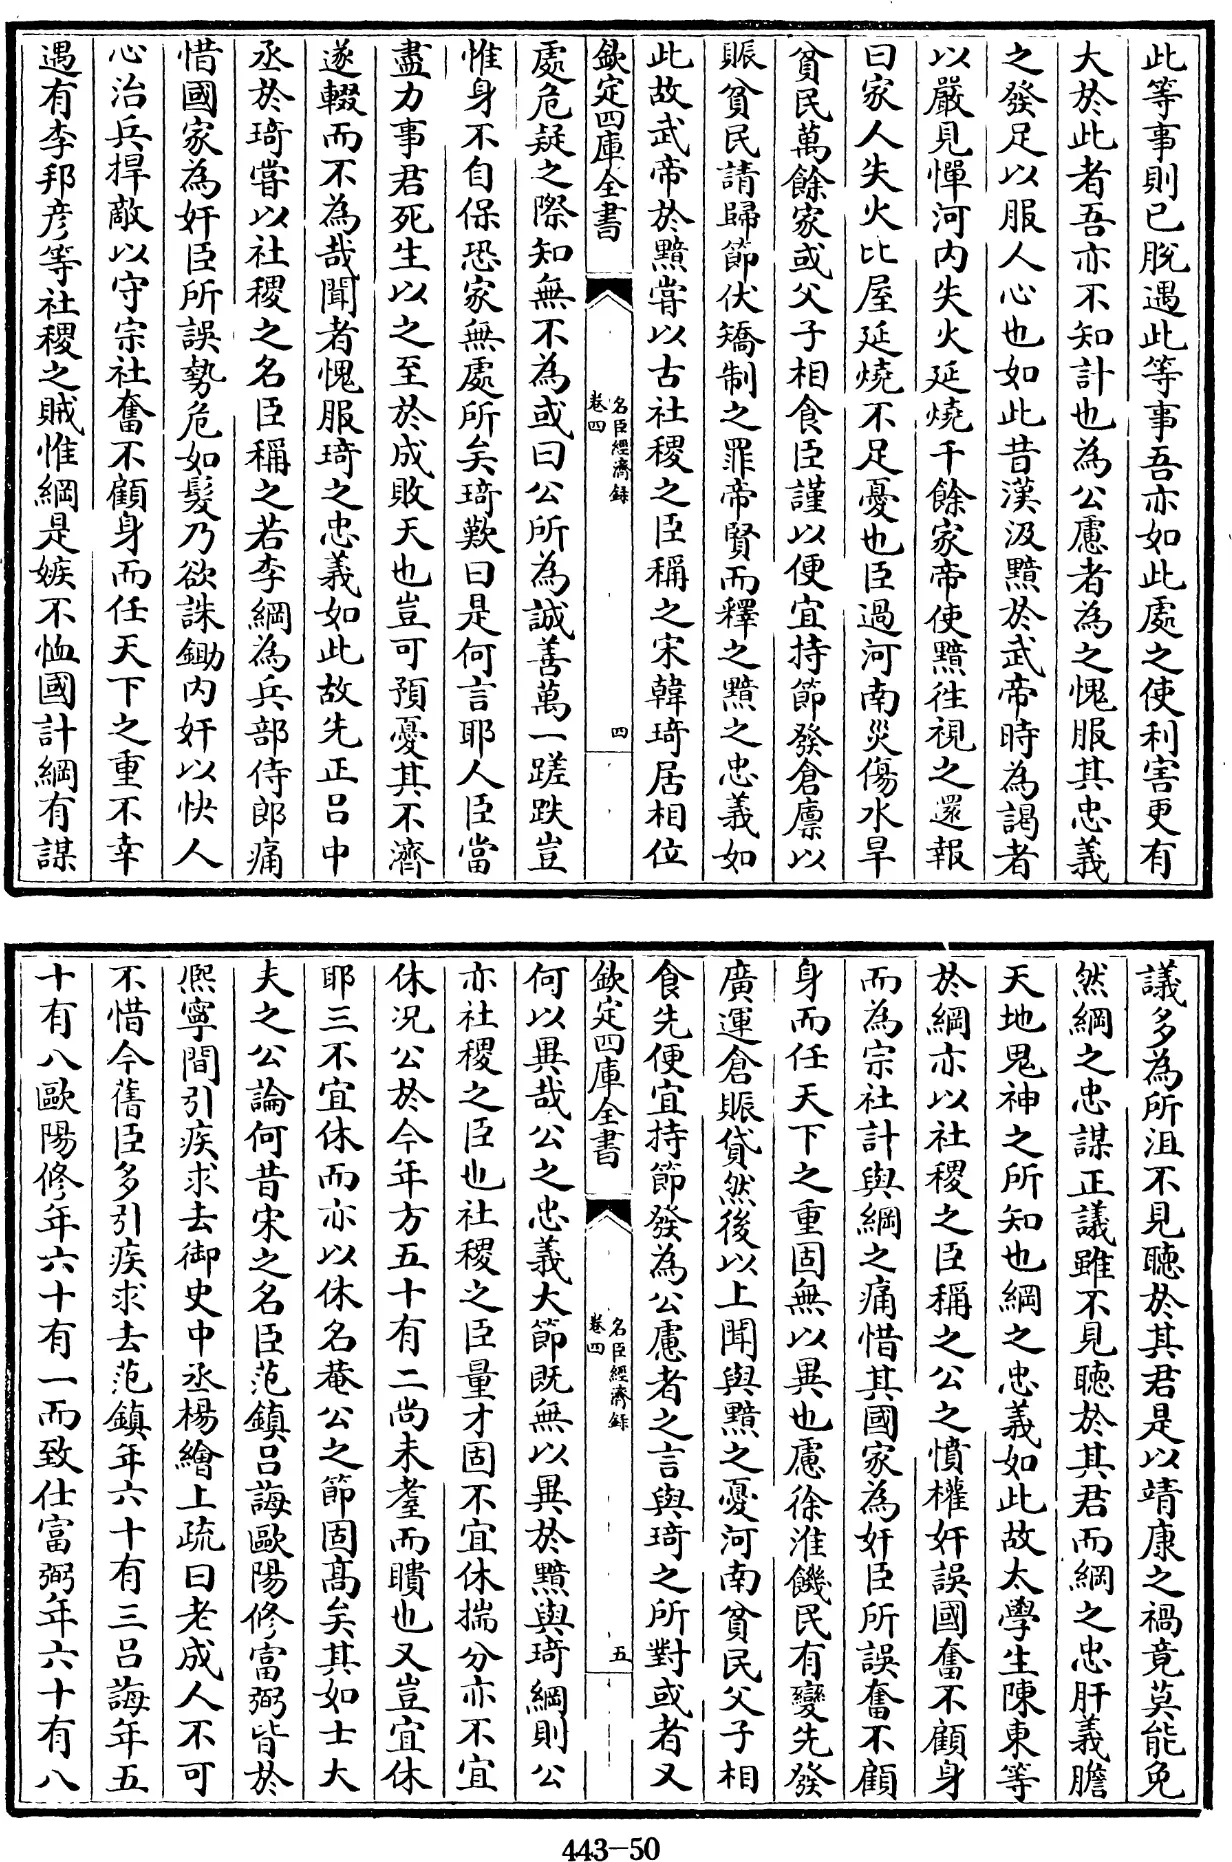 此等事則已脫遇此等事吾亦如此處之使利害更有
大於此者吾亦不知計也為公慮者為之愧服其忠義
之發足以服人心也如此昔漢汲黯於武帝時為謁者
以嚴見憚河内失火延燒千餘家帝使黯往視之還報
曰家人失火比屋延燒不足憂也臣過河南災傷水旱
貧民萬餘家或父子相食臣謹以便宜持節發倉廪以
賑貧民請歸節伏矯制之罪帝賢而釋之黯之忠義如
此故武帝於黯嘗以古社稷之臣稱之宋韓琦居相位
欽定四庫全書
名臣經濟録
卷四
四
處危疑之際知無不為或曰公所為誠善萬一蹉跌豈
惟身不自保恐家無處所矣琦歎曰是何言耶人臣當
盡力事君死生以之至於成敗天也豈可預憂其不濟
遂輟而不為哉聞者愧服琦之忠義如此故先正吕中
丞於琦嘗以社稷之名臣稱之若李綱為兵部侍郎痛
惜國家為奸臣所誤勢危如髮乃欲誅鋤内奸以快人
心治兵捍敵以守宗社奮不顧身而任天下之重不幸
遇有李邦彦等社稷之賊惟綱是嫉不恤國計綱有謀
議多為所沮不見聽於其君是以靖康之禍竟莫能免
然綱之忠謀正議雖不見聽於其君而綱之忠肝義膽
天地鬼神之所知也綱之忠義如此故太學生陳東等
於綱亦以社稷之臣稱之公之憤權奸誤國奮不顧身
而為宗社計與綱之痛惜其國家為奸臣所誤奮不顧
身而任天下之重固無以異也慮徐淮饑民有變先發
廣運倉賑貸然後以上聞與黯之憂河南貧民父子相
食先便宜持節發為公慮者之言與琦之所對或者又
欽定四庫全書
名臣經濟録
卷四
五
何以異哉公之忠義大節既無以異於黯與琦綱則公
亦社稷之臣也社稷之臣量才固不宜休揣分亦不宜
休况公於今年方五十有二尚未耋而瞶也又豈宜休
耶三不宜休而亦以休名菴公之節固高矣其如士大
夫之公論何昔宋之名臣范鎮吕誨歐陽修富弼皆於
熙寧間引疾求去御史中丞楊繪上疏曰老成人不可
不惜今舊臣多引疾求去范鎮年六十有三吕誨年五
十有八歐陽修年六十有一而致仕富弼年六十有八
443-50